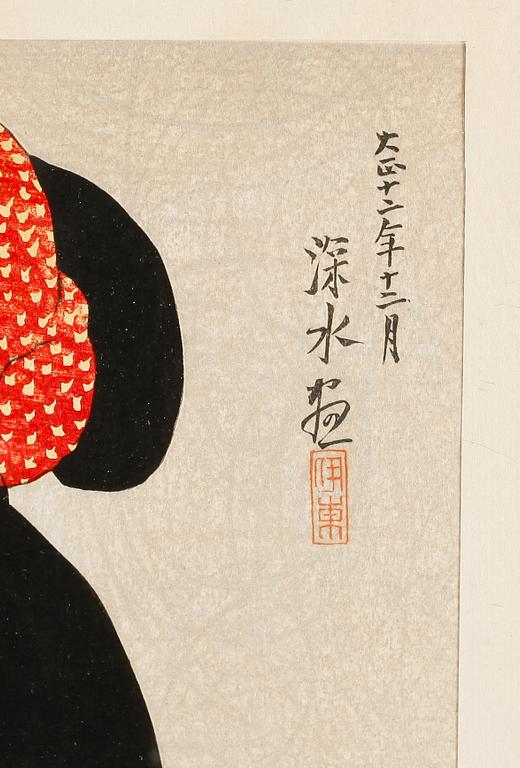 大正十二年十二月
深水画
伊東